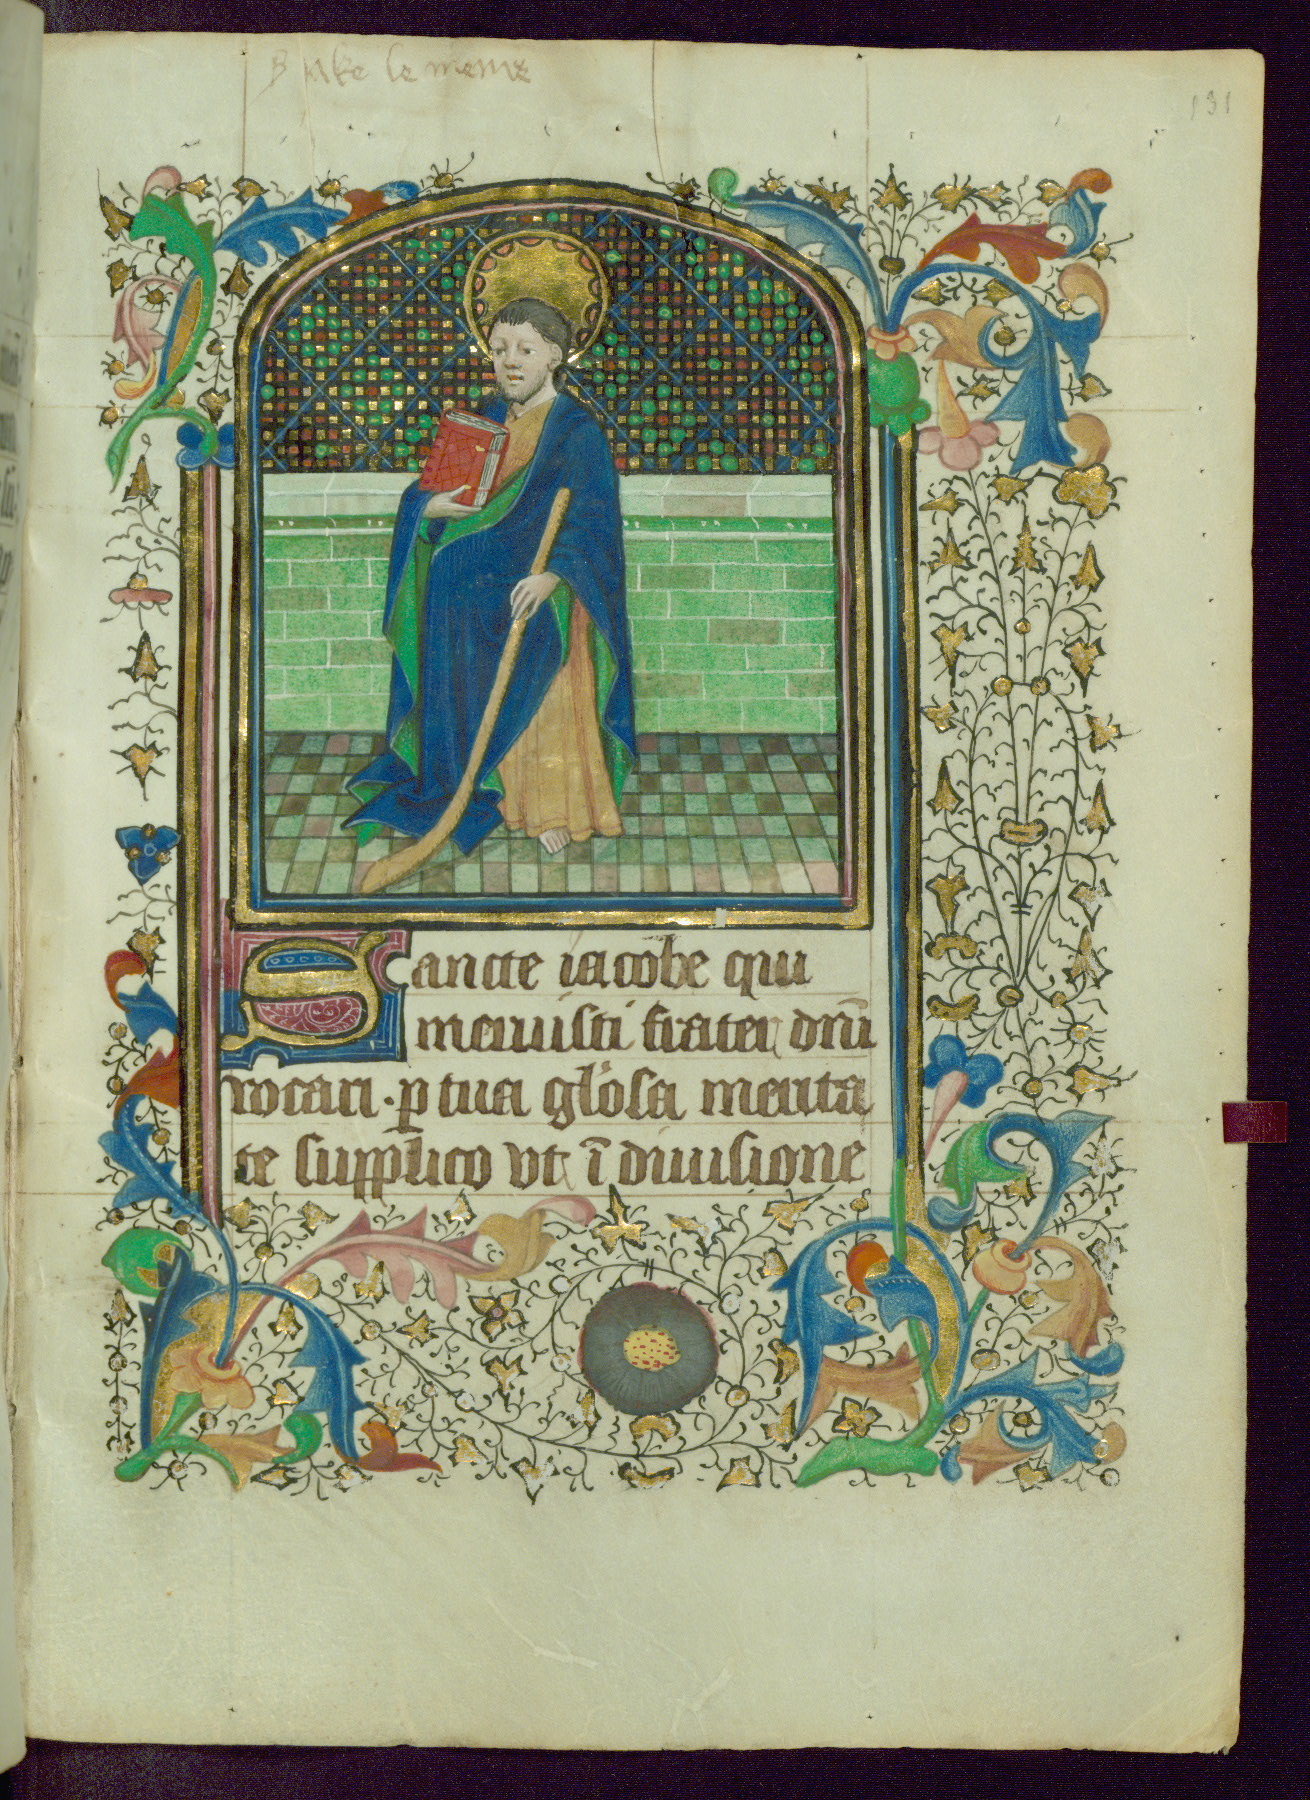 Jake le meme
131
Sancte iacobe qui
meruisti frater dn̄i
vocari · p̱ tua gl̓osa merita
te supplico vt ī diuisione